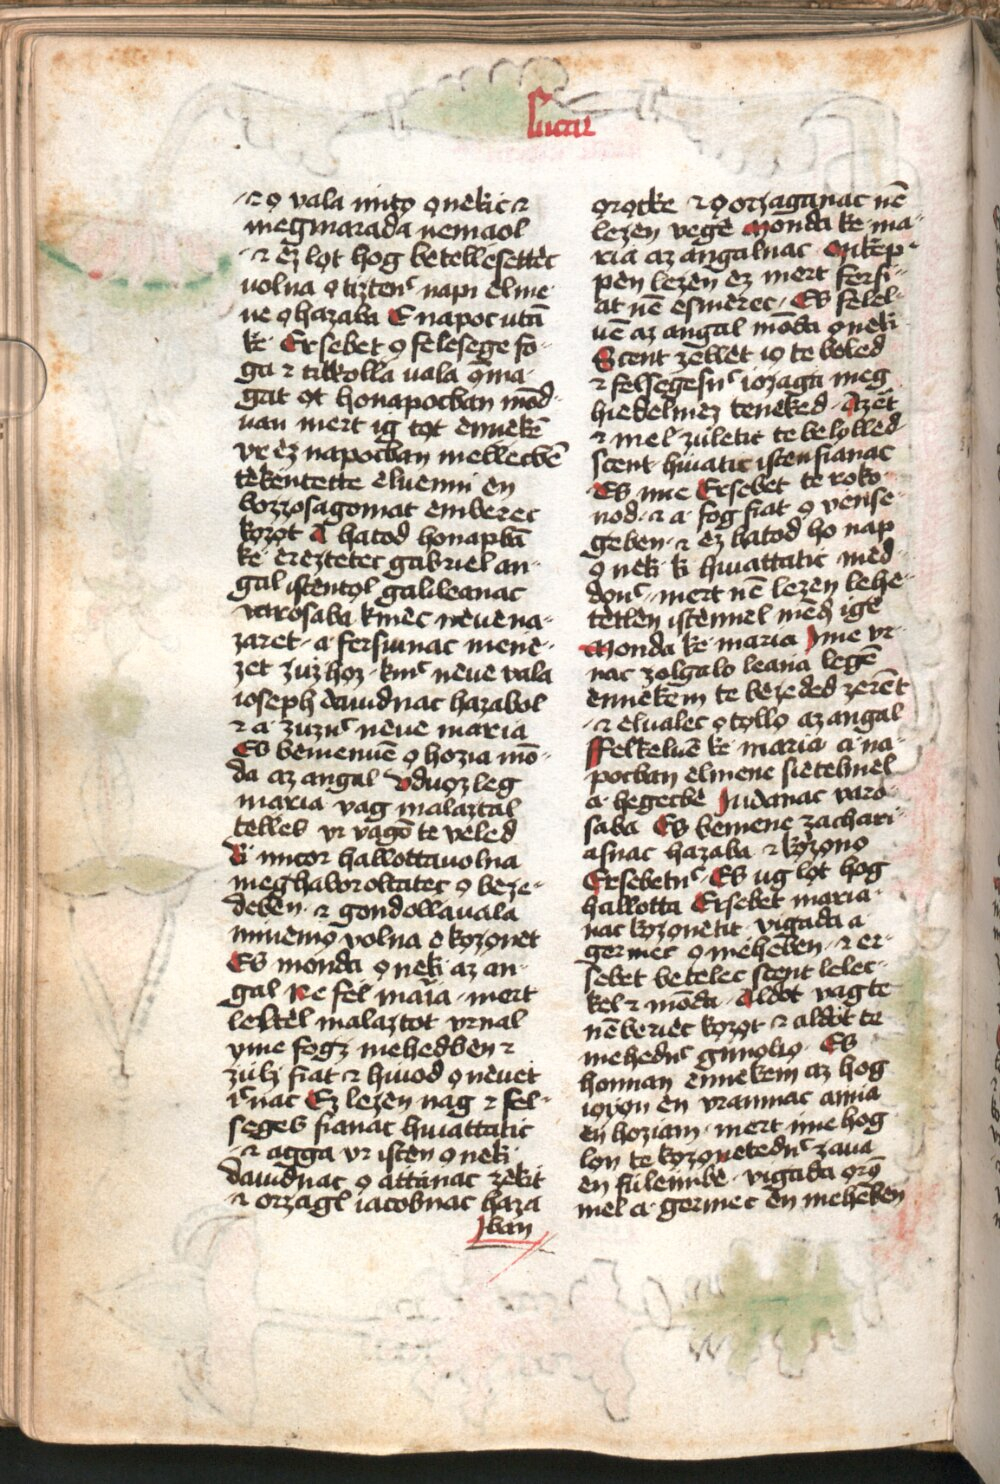 lucac
⁊ ọ vala intọ ọnèkic ⁊
megmarada nemaol
⁊ èz lọt hog betellesettèc
volna ọ tiztèn napi èlmè
ne ọ hazaba E napoc utā
kè Ersebet ọ felesege fo-
ga ⁊ titkolla uala ọ̄ma-
gat ọt honapocban mōd-
uan mert ig tọt ènnèkē
vr èz napocban mellecbē
tèkentette èluènni èn
bozzosagomat èmberec
kọzọt A hatod honapbā
kè èrèztetec gabriel an-
gal istèntọl galileanac
varosaba kinèc nèuè na-
zaret a ferfiunac meně-
zèt zuzhoz kinc nèuè vala
ioseph dauidnac hazabol
⁊ a zuznc nèuè maria
Es bèmenuē ọ hozia mō-
da az angal vduọzleg
maria vag malaztal
tèlles vr vagō tè vèlèd
Ki micor hallottauolna
meghaboroltatec ọ beze-
deben ⁊ gondollauala
minèmọ volna è kọzọnèt
Es monda ọ nèki az an-
gal Ne fel maria mert
lèltèl malaztot vrnal
yme fogz mehedben ⁊
zùlz fiat ⁊ hiuod ọ nèuèt
icnac Ez lèzèn nag ⁊ fel-
seges fianac hiuattatic
⁊ agga vr istèn ọ nèki
dauidnac ọ attanac zèkit
⁊ orzagl iacobnac haza
ban
ọrọcke ⁊ ọ orzaganac nē
lèzèn vegè Monda kè ma-
ria az angalnac Mikèp-
pèn lèzèn èz mert ferfi-
at nē esmerec Es felèl-
uē az angal mōda ọnèki
Scent zèllèt iọ tè bèlèd
⁊ felsegesnc iozaga meg
hièdèlmèz tènèkèd Azèt
⁊ mèl zùletic tè bèlọllèd
scent hiuatic isten fianac
Es ime Ersebet tè roko-
nod ⁊ a fog fiat ọ vense-
geben ⁊ èz hatod ho nap
ọ nèki ki hiuattatic mèd-
donc mert nē lèzèn lehe-
tètlèn istènnel mèdẹ igè
Monda kè maria Ime vr-
nac zolgalo leaña lègē
ènnèkèm tè bèzedèd zerènt
⁊ èlualec ọtọllọ az angal
Felkeluē kè maria a na-
pocban èlmene sietelmel
a hègècbè Iudanac varo-
saba Es bèmene zachari-
asnac hazaba ⁊ kọzọnọ
Ersebetnc Es ug lọt hog
hallotta Ersebet maria-
nac kọzọnètit vigada a
gèrmèc ọ mèhebèn ⁊ er-
sebet bètelec scent lelec-
kel ⁊ mōda Aldot vag tè
nēberièc kọzọt ⁊ aldot tè
mèhednc gimọlčọ Es
honnan ènnèkèm az hog
iọyọn èn vramnac aña
èn hoziam mert ime hog
lọn tè kọzọnètednc zaua
èn fùlèimbè vigada ọrọ̄
mèl a gèrmèc èn mèhēben